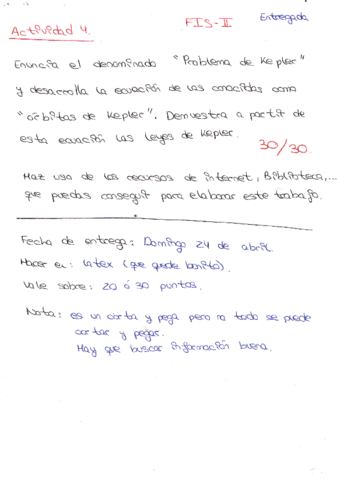 FIS-II
Entregada
Actividad 4.
Enuncia el denominado "Problema de Kepler"
y desarrolla la ecuación de las conocidas como
"órbitas de Kepler". Demuestra a partir de
esta ecuación las leyes de Kepler.
30/30.
Haz uso de los recursos de internet, Biblioteca,...
que puedas conseguir para elaborar este trabajo.
Fecha de entrega: Domingo 24 de abril.
Hacer en: latex (que quede bonito).
Vale sobre: 20 ó 30 puntos.
Nota: es un corta y pega pero no todo se puede
cortar y pegar.
Hay que buscar información buena.